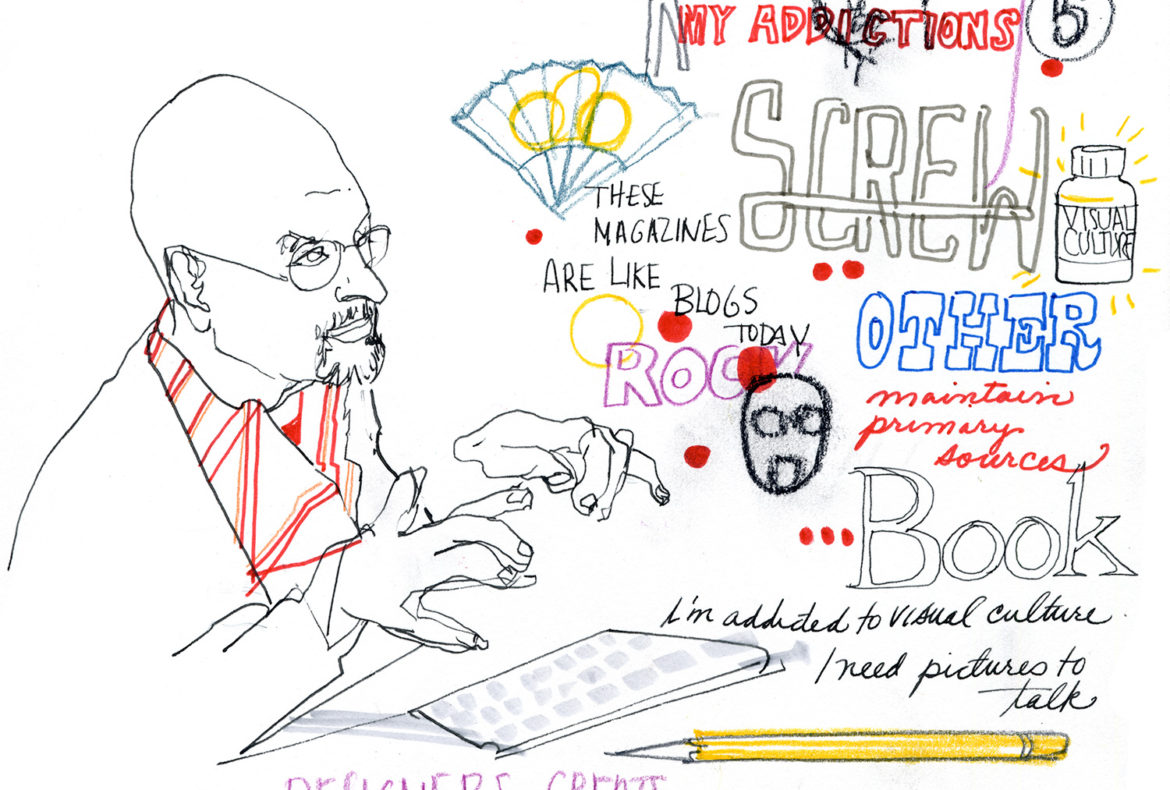 MY ADDICTIONS
5
SCREW
THESE
MAGAZINES
ARE LIKE
BLOGS
TODAY
ROCK
VISUAL
CULTURE
OTHER
maintain
primary
sources
Book
I'm addicted to VISUAL culture.
I need pictures to
talk
DESIGNERS CREATE